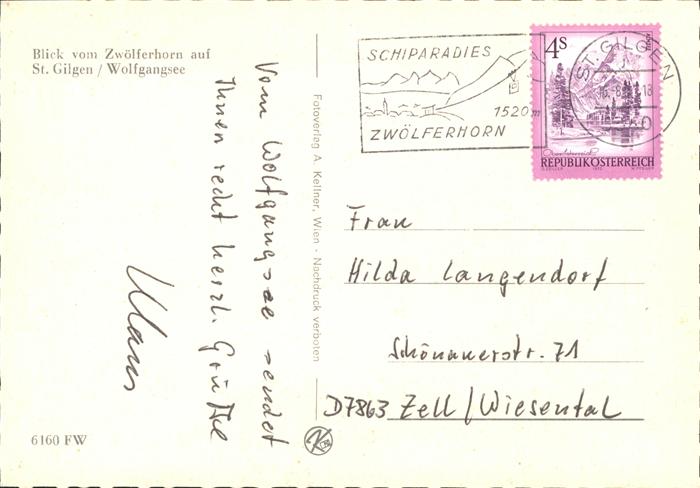 Blick vom Zwölferhorn auf
St. Gilgen / Wolfgangsee
Vom Wolfgangsee sendet
Ihnen recht herzl. Grüße
Klaus
6160 FW
Fotoverlag A. Kellner, Wien - Nachdruck verboten
SCHIPARADIES
1520 m
ZWÖLFERHORN
4S
ST. GILGEN
REPUBLIK ÖSTERREICH
Frau
Hilda Langendorf
Schönauerstr. 71
D7863 Zell/Wiesental